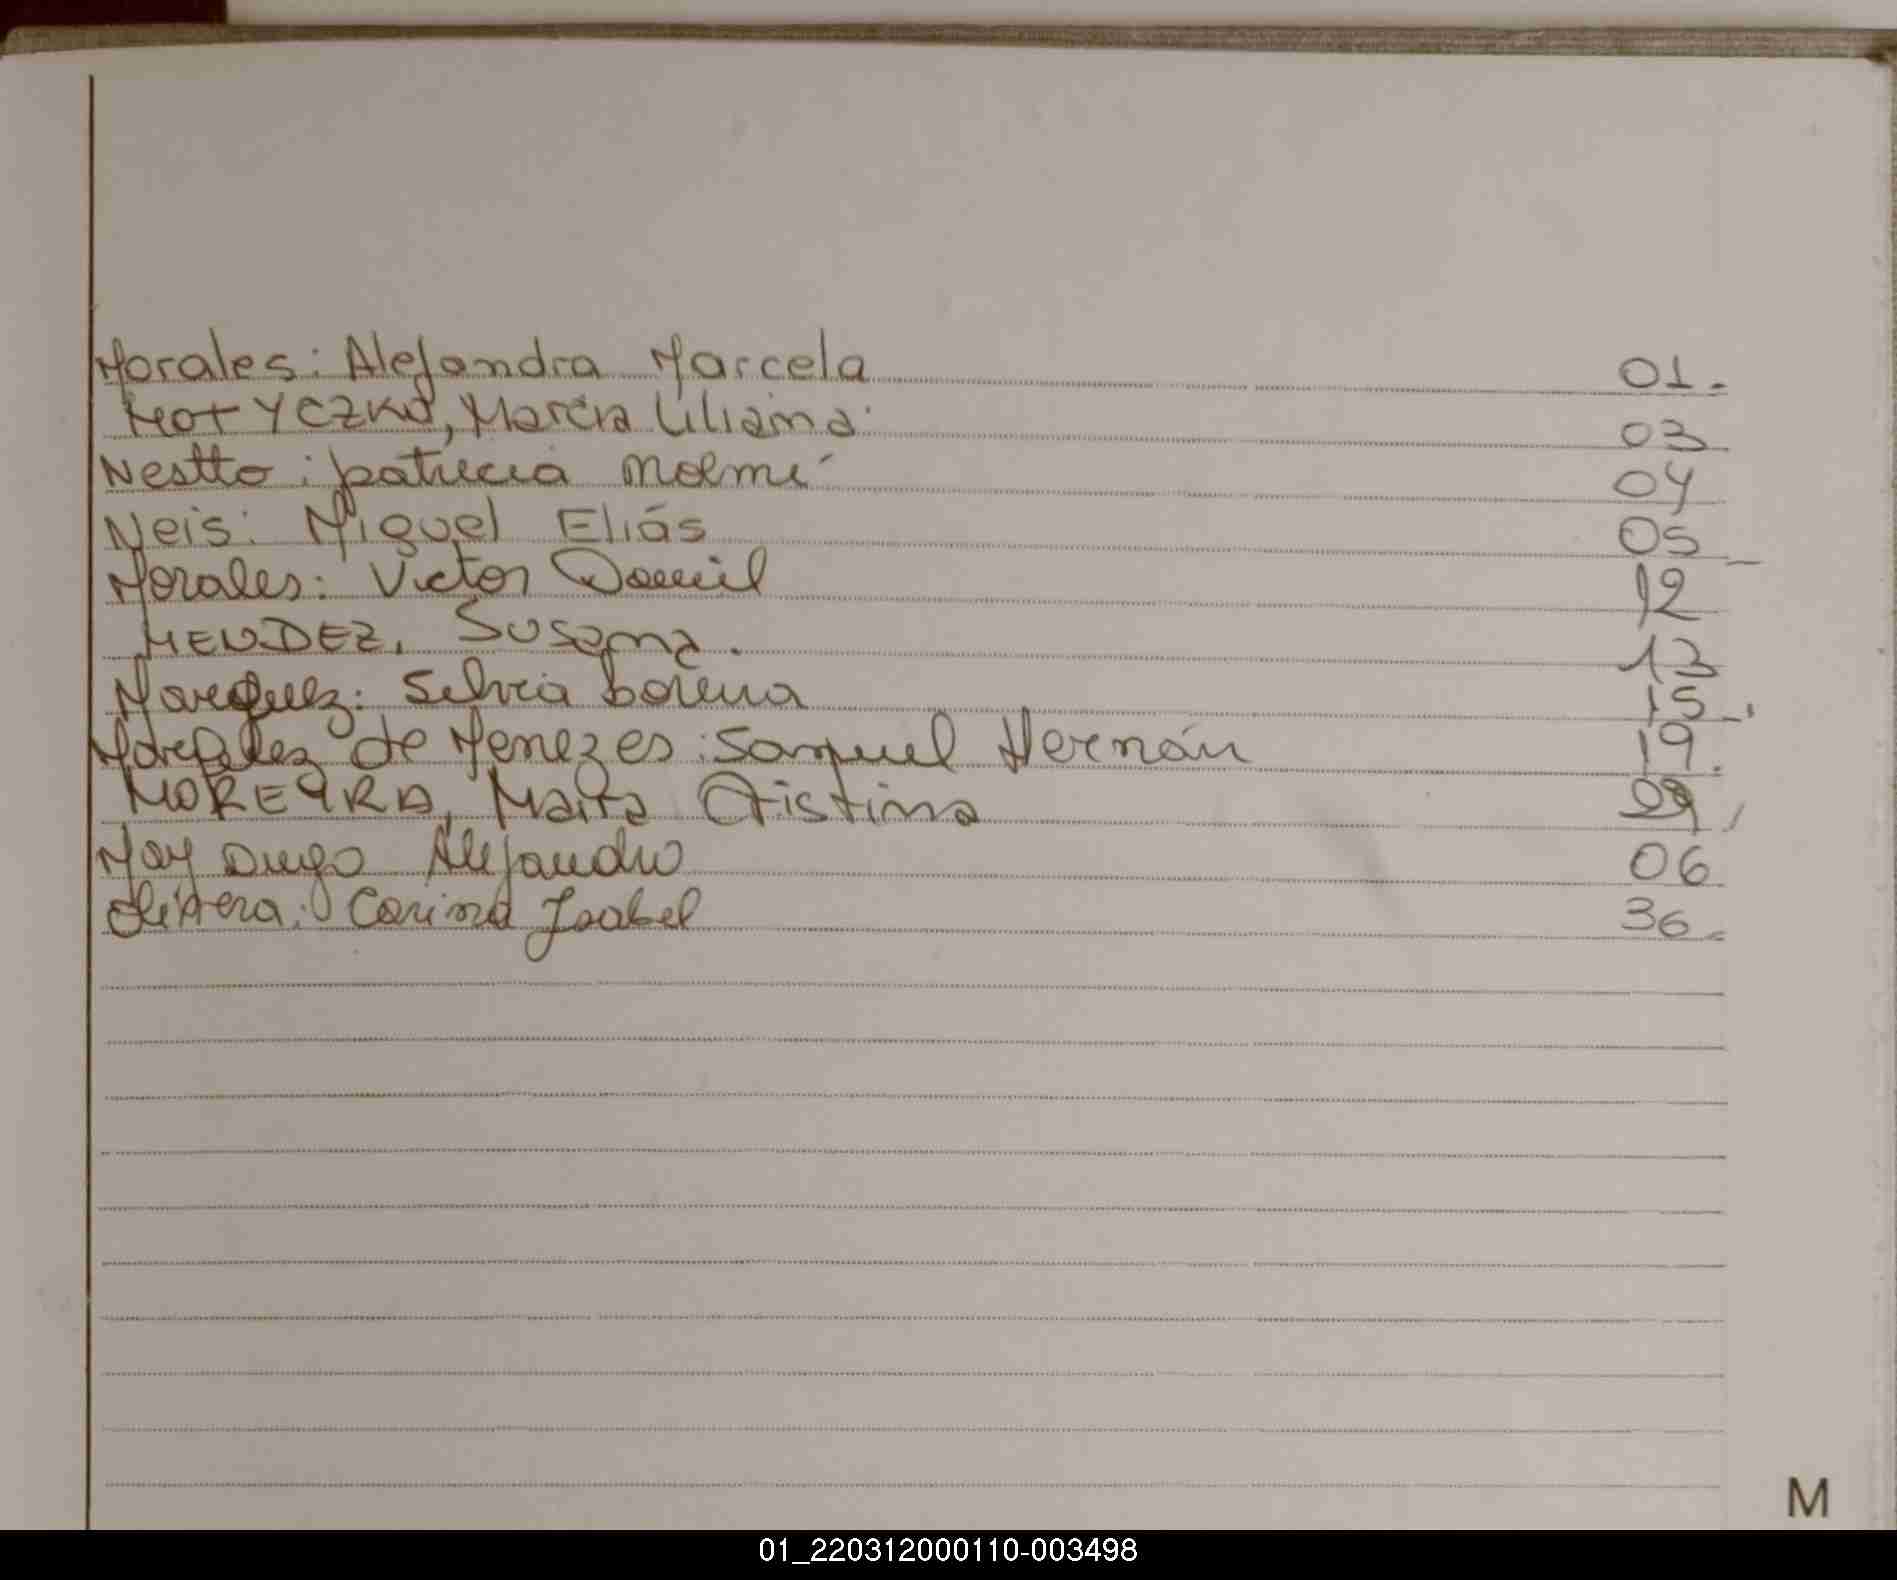 Morales: Alejandra Marcela 01.
MOTYCZKO, Marcia Liliana. 03
Nestto: patricia Noemí 04
Neis: Miguel Elías 05
Morales: Victor Daniel 12
MENDEZ, Susana. 13
Marquez: Silvia Lorena 15
de Menezes: Samuel Hernán 19.
MOREYRA, Maria Cristina 29
May Diego Alejandro 06
Olivera: Corina Isabel 36
M
01_220312000110-003498